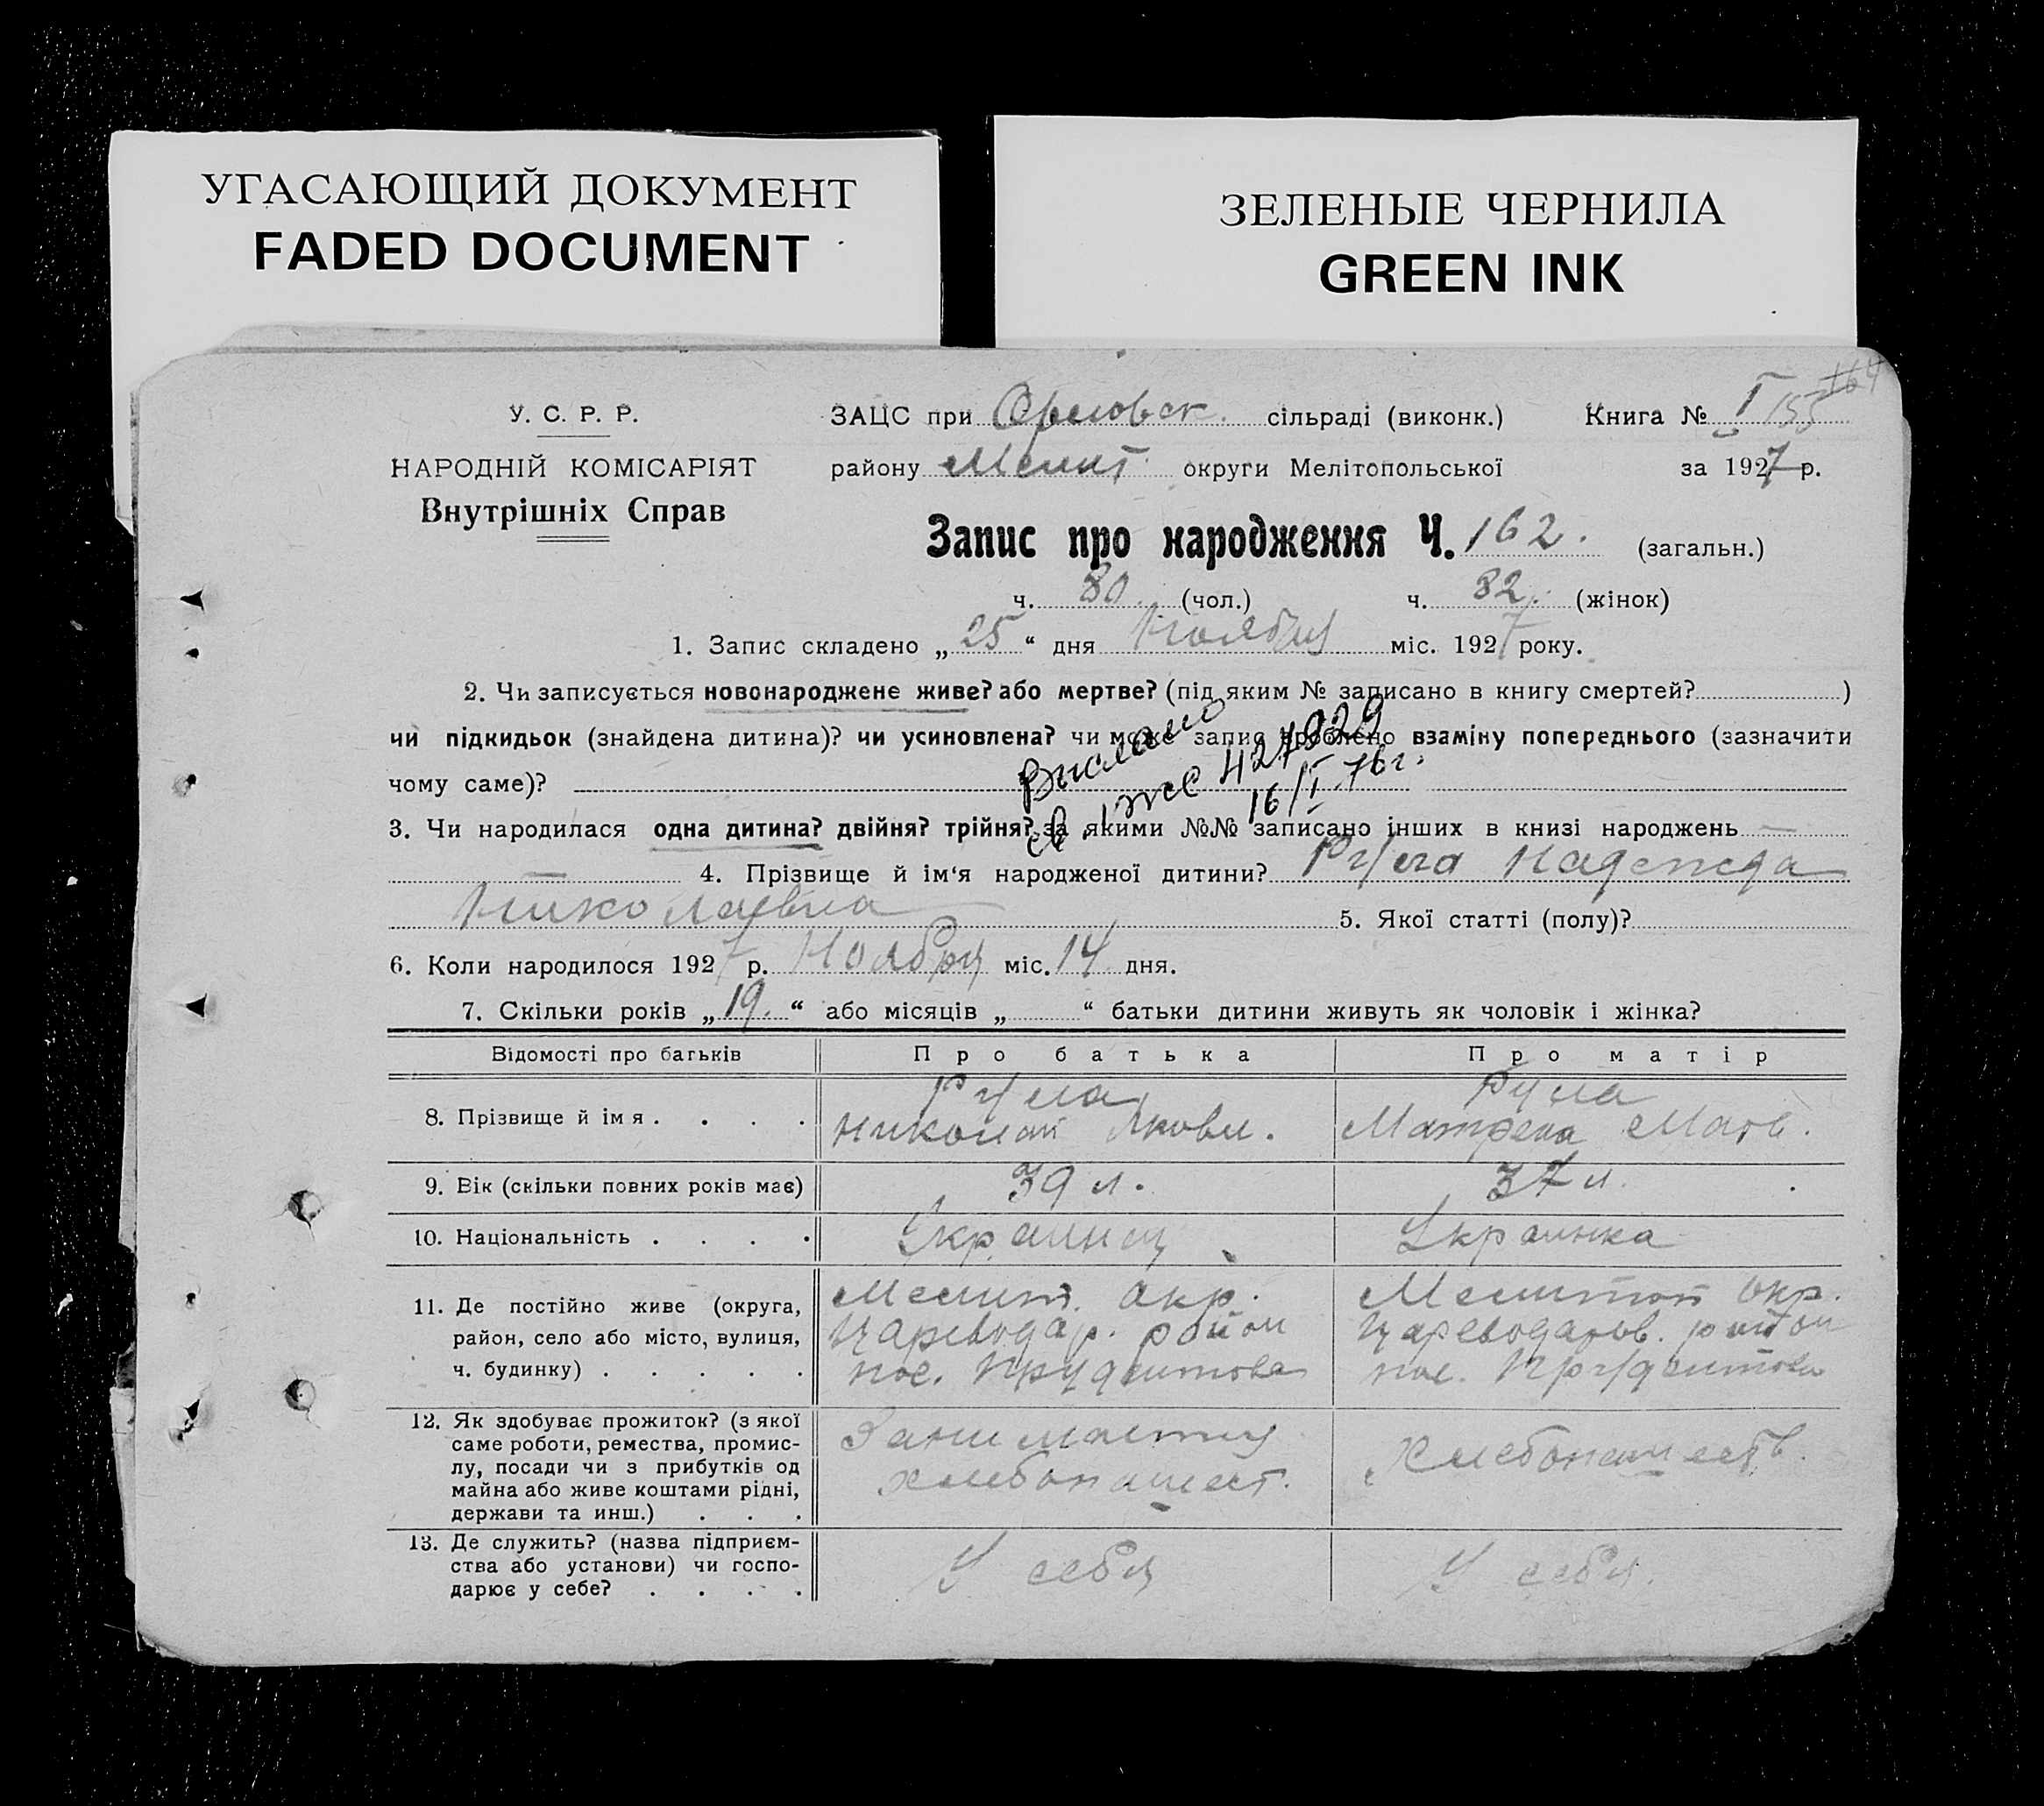 УГАСАЮЩИЙ ДОКУМЕНТ
FADED DOCUMENT
ЗЕЛЕНЫЕ ЧЕРНИЛА
GREEN INK
У. С. Р. Р.
НАРОДНІЙ КОМІСАРІЯТ
Внутрішніх Справ
ЗАЦС при Орловск. сільраді (виконк.) Книга № I 155 164
району Мелит. округи Мелітопольської за 1927 р.
Запис про народження Ч. 162. (загальн.)
ч. 80 (чол.) ч. 82 (жінок)
1. Запис складено „25“ дня Ноября міс. 1927 року.
2. Чи записується новонароджене живе? або мертве? (під яким № записано в книгу смертей? )
чи підкидьок (знайдена дитина)? чи усиновлена? чи може запис зроблено взаміну попереднього (зазначити
чому саме)?
Выслано
св. 1 427929
16/I 76г.
3. Чи народилася одна дитина? двійня? трійня? за якими №№ записано інших в книзі народжень —
— 4. Прізвище й ім‘я народженої дитини? Надежда
Николаевна 5. Якої статті (полу)?
6. Коли народилося 1927 р. Ноября міс. 14 дня.
7. Скільки років „19.“ або місяців „ “ батьки дитини живуть як чоловік і жінка?
Відомості про батьків Про батька Про матір
8. Прізвище й імя . . . .
Николай Якови.
Матрена Матв.
9. Вік (скільки повних років має) 39 л. 37 л.
10. Національність . . . . Украинец Украинка
11. Де постійно живе (округа,
район, село або місто, вулиця,
ч. будинку) . . . . .
Мелит. окр.
Цареводар. район
пос. Прудентова
Мелитоп окр.
Цареводаров. район
пос. Прудентова
12. Як здобуває прожиток? (з якої
саме роботи, ремества, промис-
лу, посади чи з прибутків од
майна або живе коштами рідні,
держави та инш.) . . .
Занимается
хлебопашест.
Хлебопашеств.
13. Де служить? (назва підприєм-
ства або установи) чи госпо-
дарює у себе? . . . .
У себя
У себя.